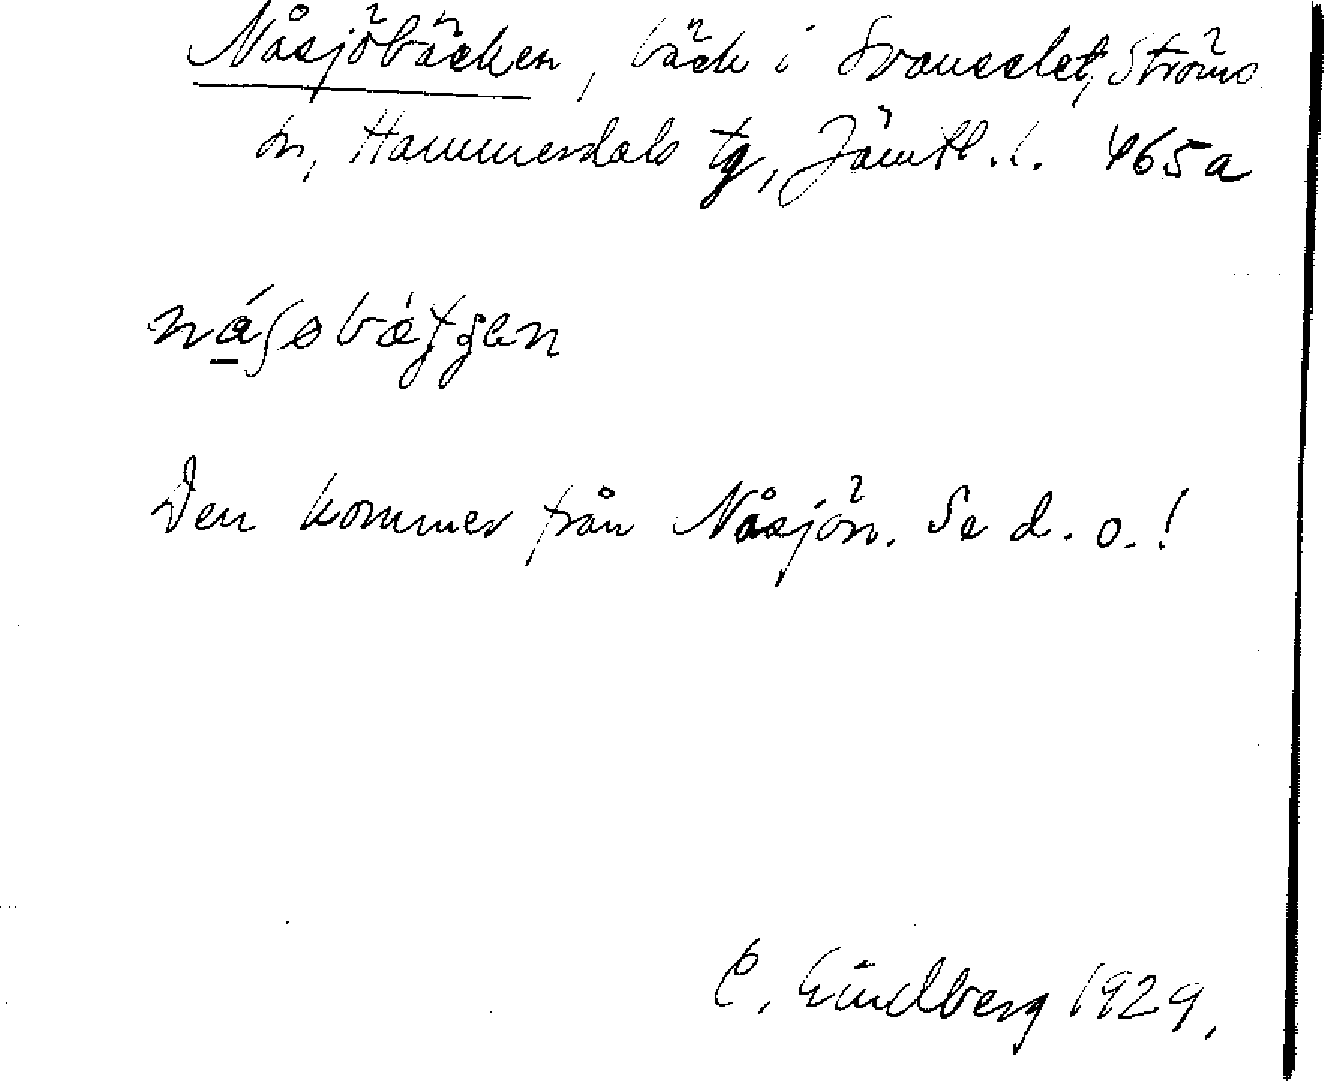 Nåsjöbäcken, bäck i Svanselet, Ströms
sn, Hammerdals tg, Jämtl. l. 465a
Den kommer från Nåsjön. Se d. o.!
C. Lindberg 1929.